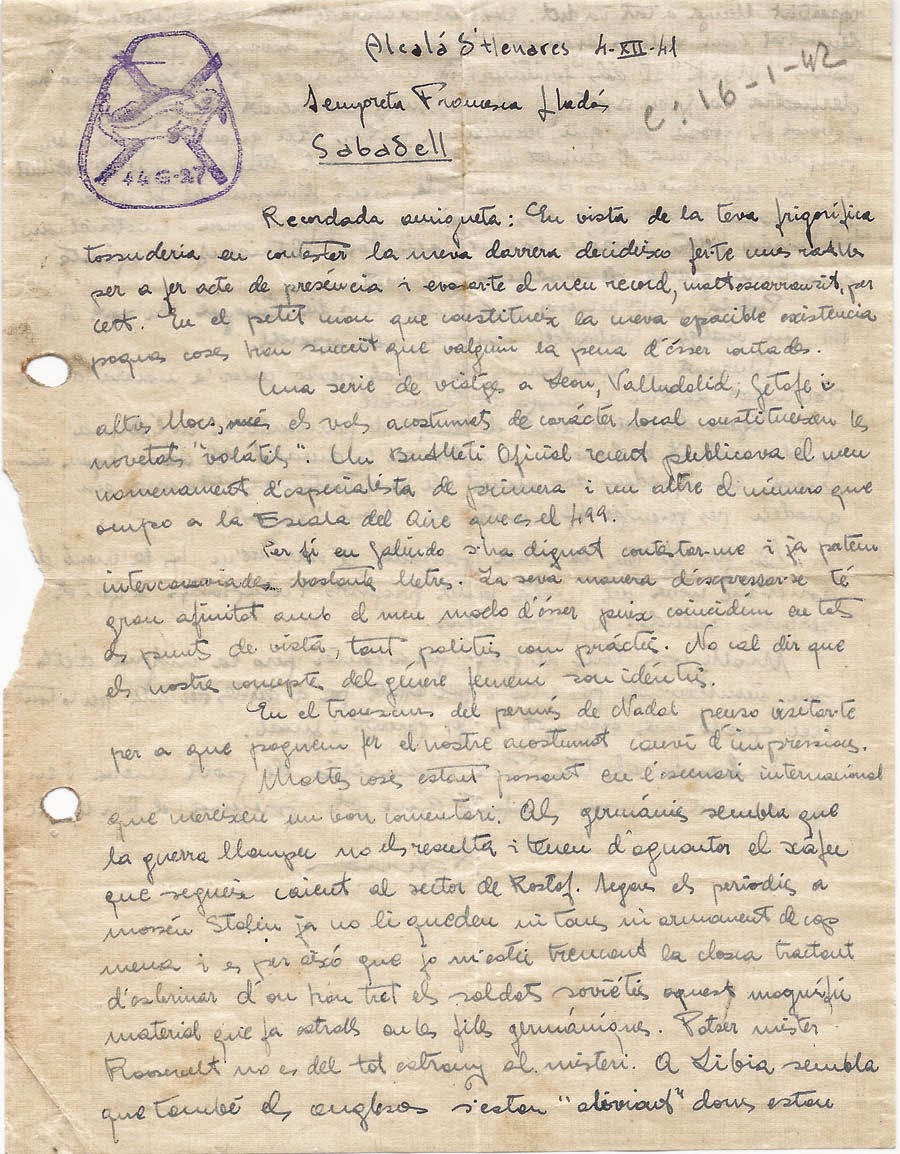 Alcalá d'Henares 4-XII-41
c: 16-1-42
Senyoreta Francesca Lladós
Sabadell
44-G-27
Recordada amigueta: En vista de la teva frigorífica
tossuderia en contestar la meva darrera decideixo fer-te unes ratlles
per a fer acte de presència i evocar-te el meu record, molt escarransit, per
cert. En el petit mon que constitueix la meva apacible existència
poques coses han succeit que valguin la pena d'ésser contades.
Una serie de viatges a Leon, Valladolid, Getafe i
altres llocs, més els vols acostumats de caràcter local constitueixen les
novetats "volátils". Un Butlletí Oficial recent publicava el meu
nomenament d'especialista de primera i un altre el número que
ocupo a la Escala del Aire que es el 499.
Per fi en Galindo s'ha dignat contestar-me i ja portem
intercanviades bastants lletres. La seva manera d'expressar-se té
gran afinitat amb el meu modo d'ésser puix coincidim en tots
els punts de vista, tant politics com pràctics. No cal dir que
els nostres conceptes del génere femení son idéntics.
En el transcurs del permís de Nadal penso visitar-te
per a que poguem fer el nostre acostumat canvi d'impressions.
Moltes coses estant passant en l'escenari internacional
que mereixen un bon comentari. Als germànics sembla que
la guerra llampec no els resulta i tenen d'aguantar el xàfec
que segueix caient al sector de Rostof. Segons els periodics a
mossén Stalin ja no li queden ni tancs ni armament de cap
mena i es per això que jo m'estic trencant la closca tractant
d'esbrinar d'on han tret els soldats soviétics aquest magnífic
material que fa estralls en les files germàniques. Potser mister
Roosevelt no es del tot estrany al misteri. A Libia sembla
que també els anglesos s'estan "aliviant" doncs estan